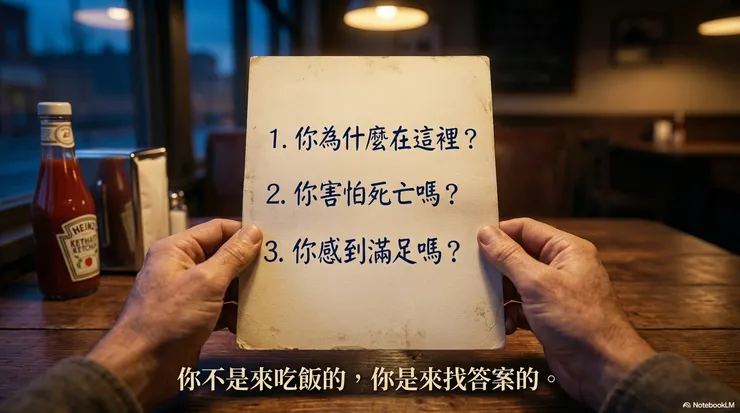 HEINZ
KETHAP
KETCHUP
1. 你為什麼在這裡？
2. 你害怕死亡嗎？
3. 你感到滿足嗎？
你不是來吃飯的，你是來找答案的。
NotebookLM